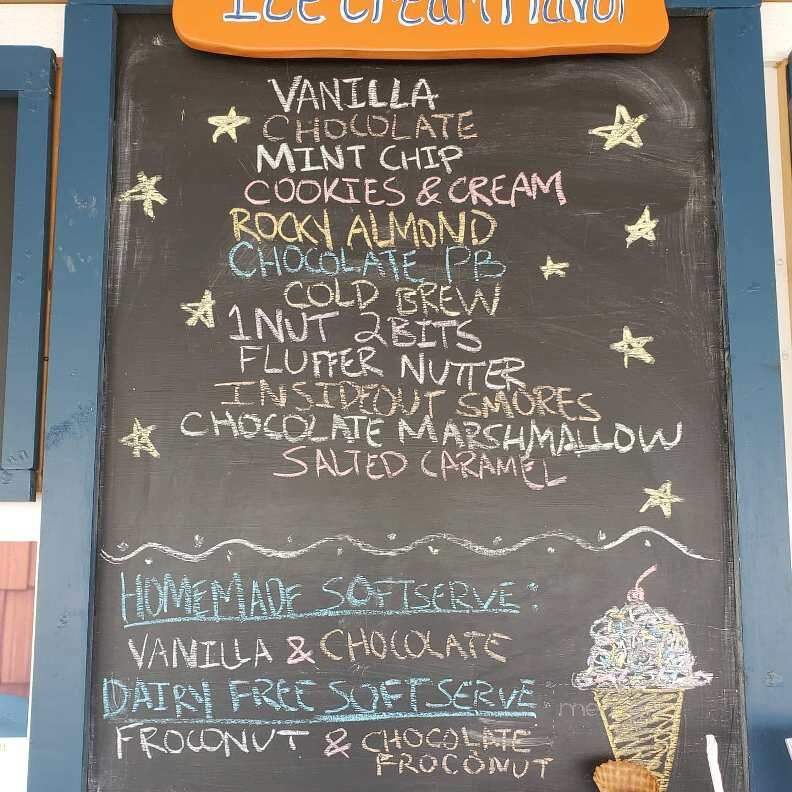 Ice Cream Flavor
VANILLA
CHOCOLATE
MINT CHIP
COOKIES & CREAM
ROCKY ALMOND
CHOCOLATE PB
COLD BREW
1 NUT 2 BITS
FLUFFER NUTTER
INSIDEOUT SMORES
CHOCOLATE MARSHMALLOW
SALTED CARAMEL
HOMEMADE SOFTSERVE:
VANILLA & CHOCOLATE
DAIRY FREE SOFTSERVE
FROCONUT & CHOCOLATE
FROCONUT